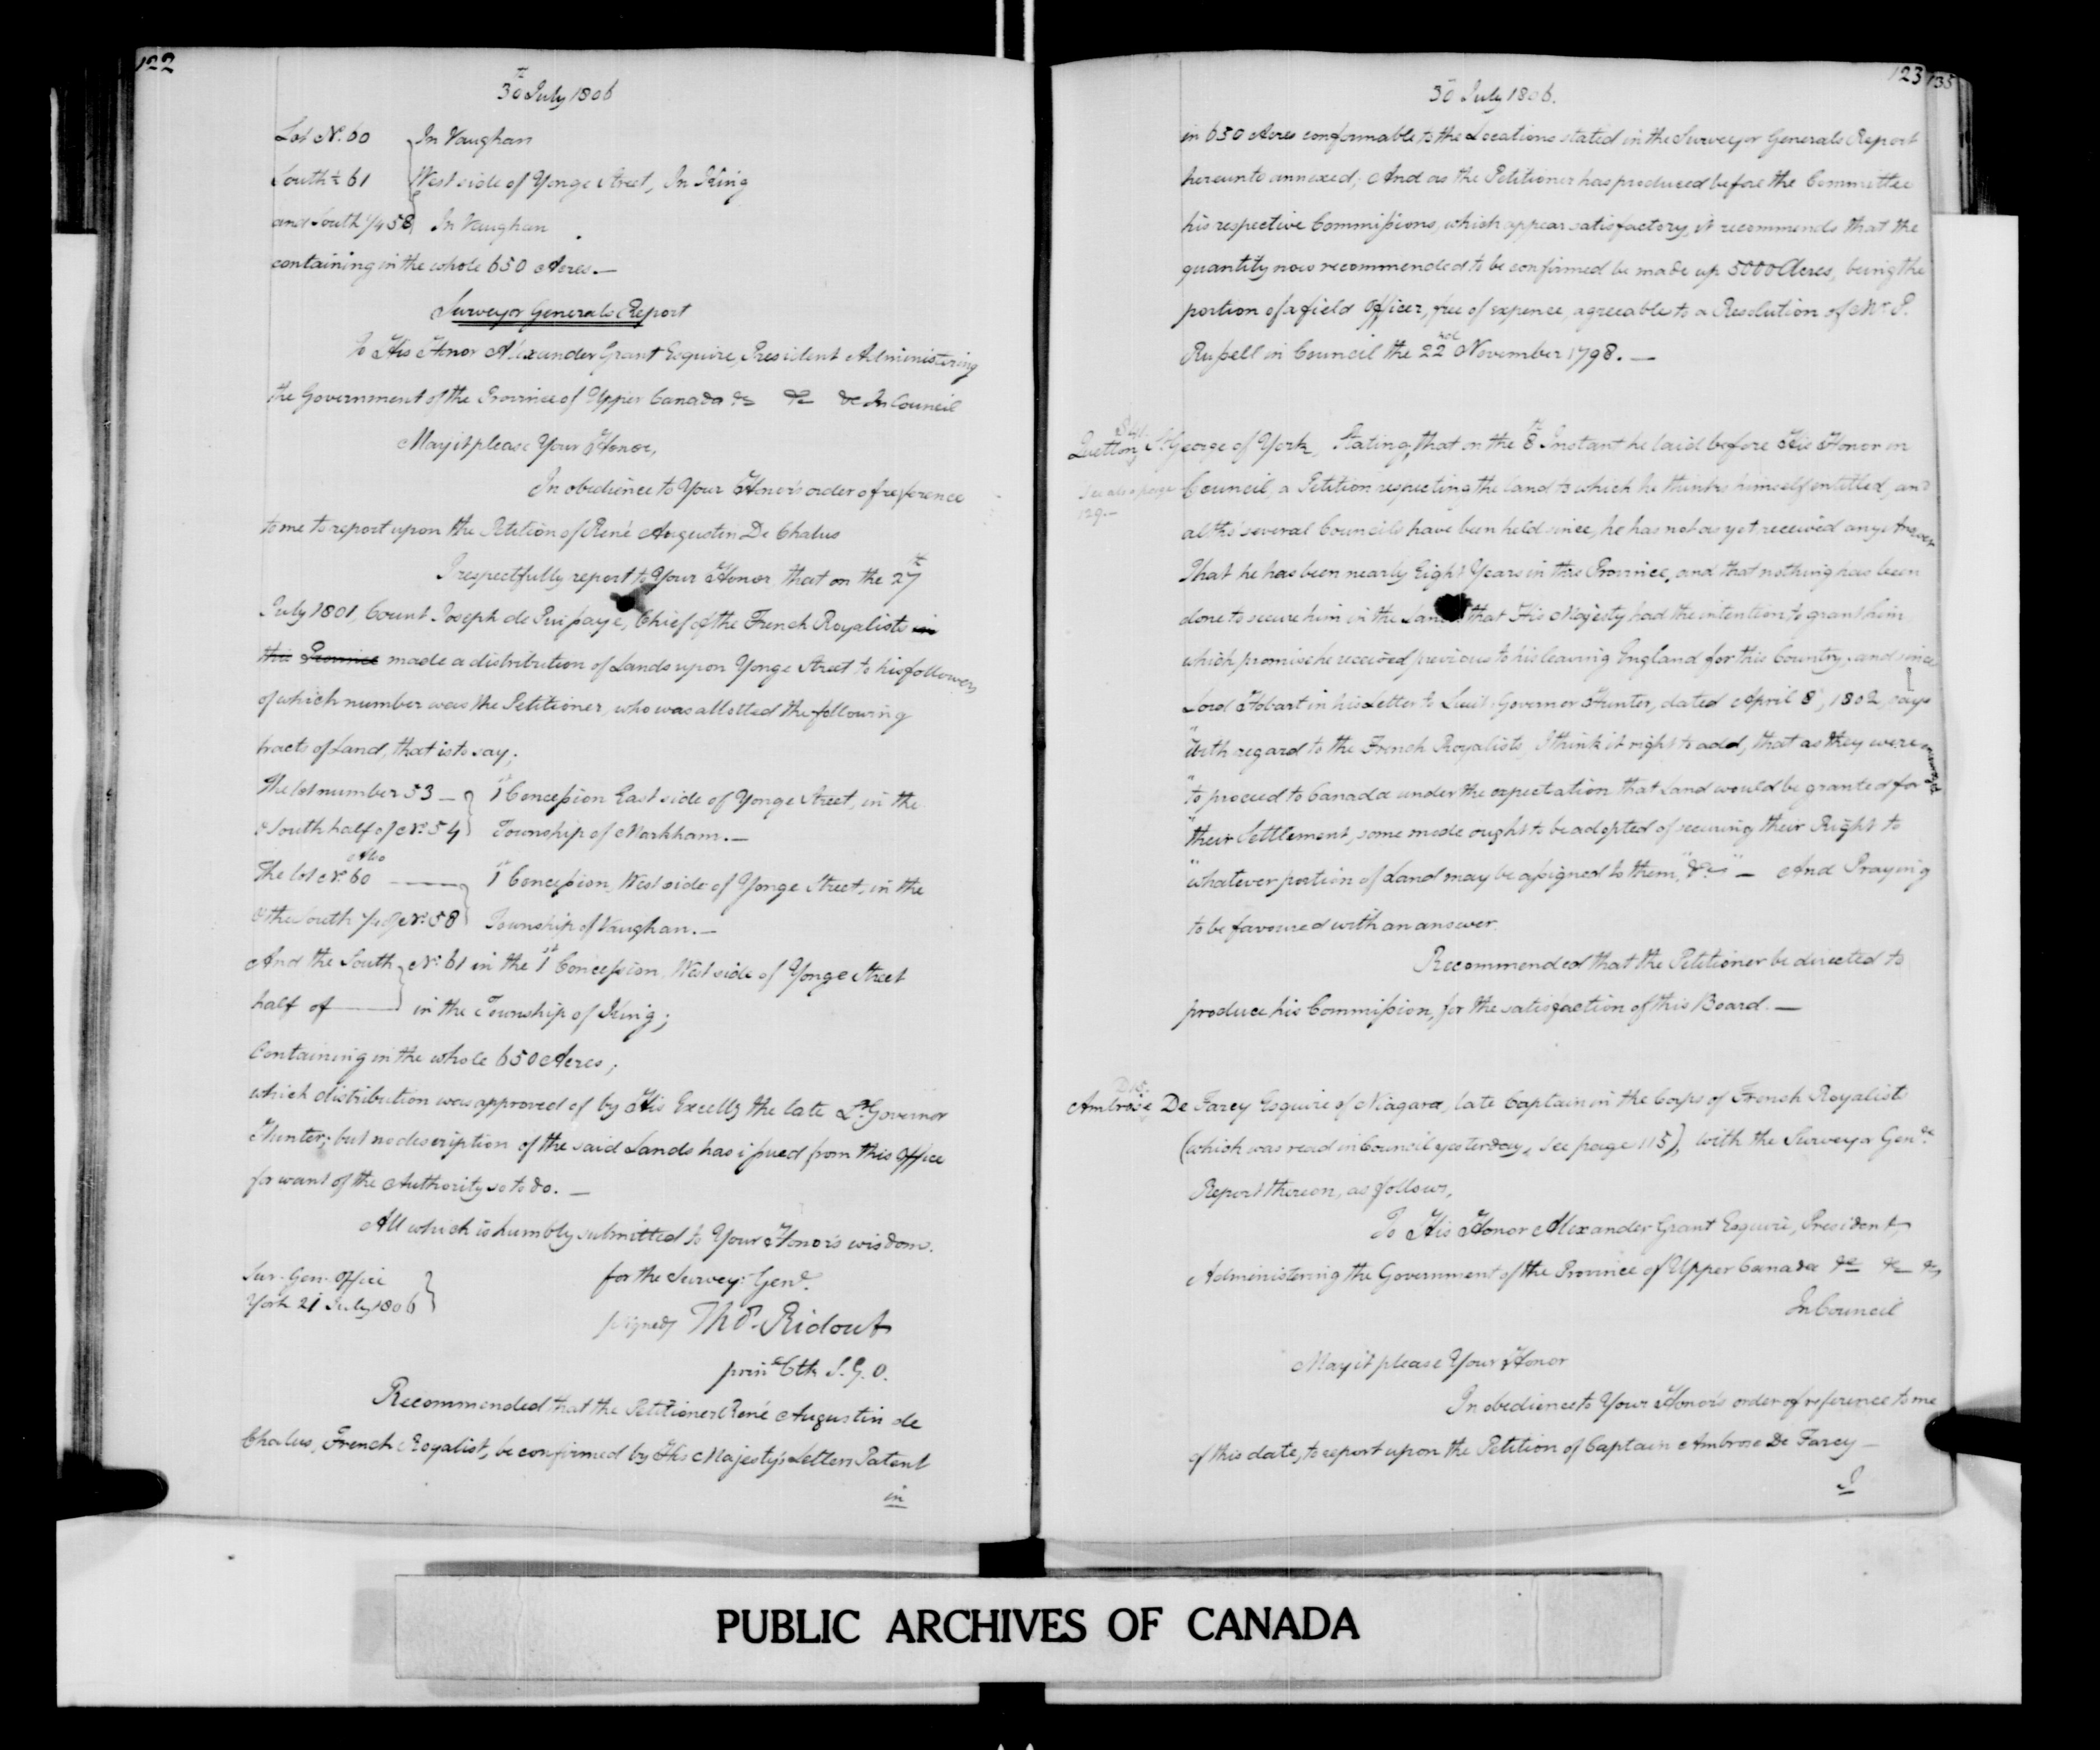 122
30th July 1806
Lot No. 60 } In Vaughan
South ½ 61 } West side of Yonge Street, In King
and South ¼ 58 } In Vaughan
containing in the whole 650 Acres.—
Surveyor Generals Report
To His Honor Alexander Grant Esquire, President Administering
the Government of the Province of Upper Canada &c &c &c In Council
May it please Your Honor,
In obedience to Your Honor's order of reference
to me to report upon the Petition of René Augustin De Chalus
I respectfully report to Your Honor that on the 27th
July 1801, Count Joseph de Puisaye, Chief of the French Royalists in
this Province made a distribution of Lands upon Yonge Street to his followers
of which number was the Petitioner, who was allotted the following
tracts of Land, that is to say;
The lot number 53 — } 1st Concession East side of Yonge Street, in the
& South half of No. 54 } Township of Markham.—
Also
The lot No. 60 —— } 1st Concession, West side of Yonge Street, in the
& the South ¼ of No. 58 } Township of Vaughan.—
And the South } No. 61 in the 1st Concession, West side of Yonge Street
half of —— } in the Township of King;
Containing in the whole 650 Acres;
which distribution was approved of by His Excelly the late Lt Governor
Hunter; but no description of the said Lands has issued from this Office
for want of the Authority so to do.—
All which is humbly submitted to Your Honor's wisdom.
Sur. Gen. Office } for the Survey: Genl.
York 21 July 1806 }
signed Thos. Ridout
prinl Clk S.G.O.
Recommended that the Petitioner René Augustin de
Chalus, French Royalist, be confirmed by His Majesty's Letters Patent
in
123 135
30 July 1806.
in 650 Acres conformable to the Locations stated in the Surveyor Generals Report
hereunto annexed; And as the Petitioner has produced before the Committee
his respective Commissions, which appear satisfactory, it recommends that the
quantity now recommended to be confirmed be made up 5000 Acres, being the
portion of a field Officer, free of expence, agreeable to a Resolution of Mr. P.
Russell in Council the 22nd November 1798.—
Quetton St George of York, Stating, that on the 8th Instant he laid before His Honor in
See also page
129.—
Council, a Petition respecting the land to which he thinks himself entitled, and
altho' several Councils have been held since, he has not as yet received any Answer
That he has been nearly Eight Years in this Province, and that nothing has been
done to secure him in the Land that His Majesty had the intention to grant him
which promise he received previous to his leaving England for this Country, and since
Lord Hobart in his Letter to Lieut. Governor Hunter, dated April 8th, 1802, says
"With regard to the French Royalists, I think it right to add, that as they were encouraged
"to proceed to Canada under the expectation that Land would be granted for
"their Settlement, some mode ought to be adopted of securing their Right to
"whatever portion of Land may be assigned to them," &c" — And Praying
to be favoured with an answer.
Recommended that the Petitioner be directed to
produce his Commission, for the satisfaction of this Board.—
Ambroise De Farcy Esquire of Niagara, late Captain in the Corps of French Royalists
(which was read in Council yesterday, see page 115), with the Surveyor Genl.
Report thereon, as follows,
To His Honor Alexander Grant Esquire, President,
Administering the Government of the Province of Upper Canada &c &c &c,
In Council
May it please Your Honor
In obedience to Your Honor's order of reference to me
of this date, to report upon the Petition of Captain Ambrose De Farcy—
I
PUBLIC ARCHIVES OF CANADA